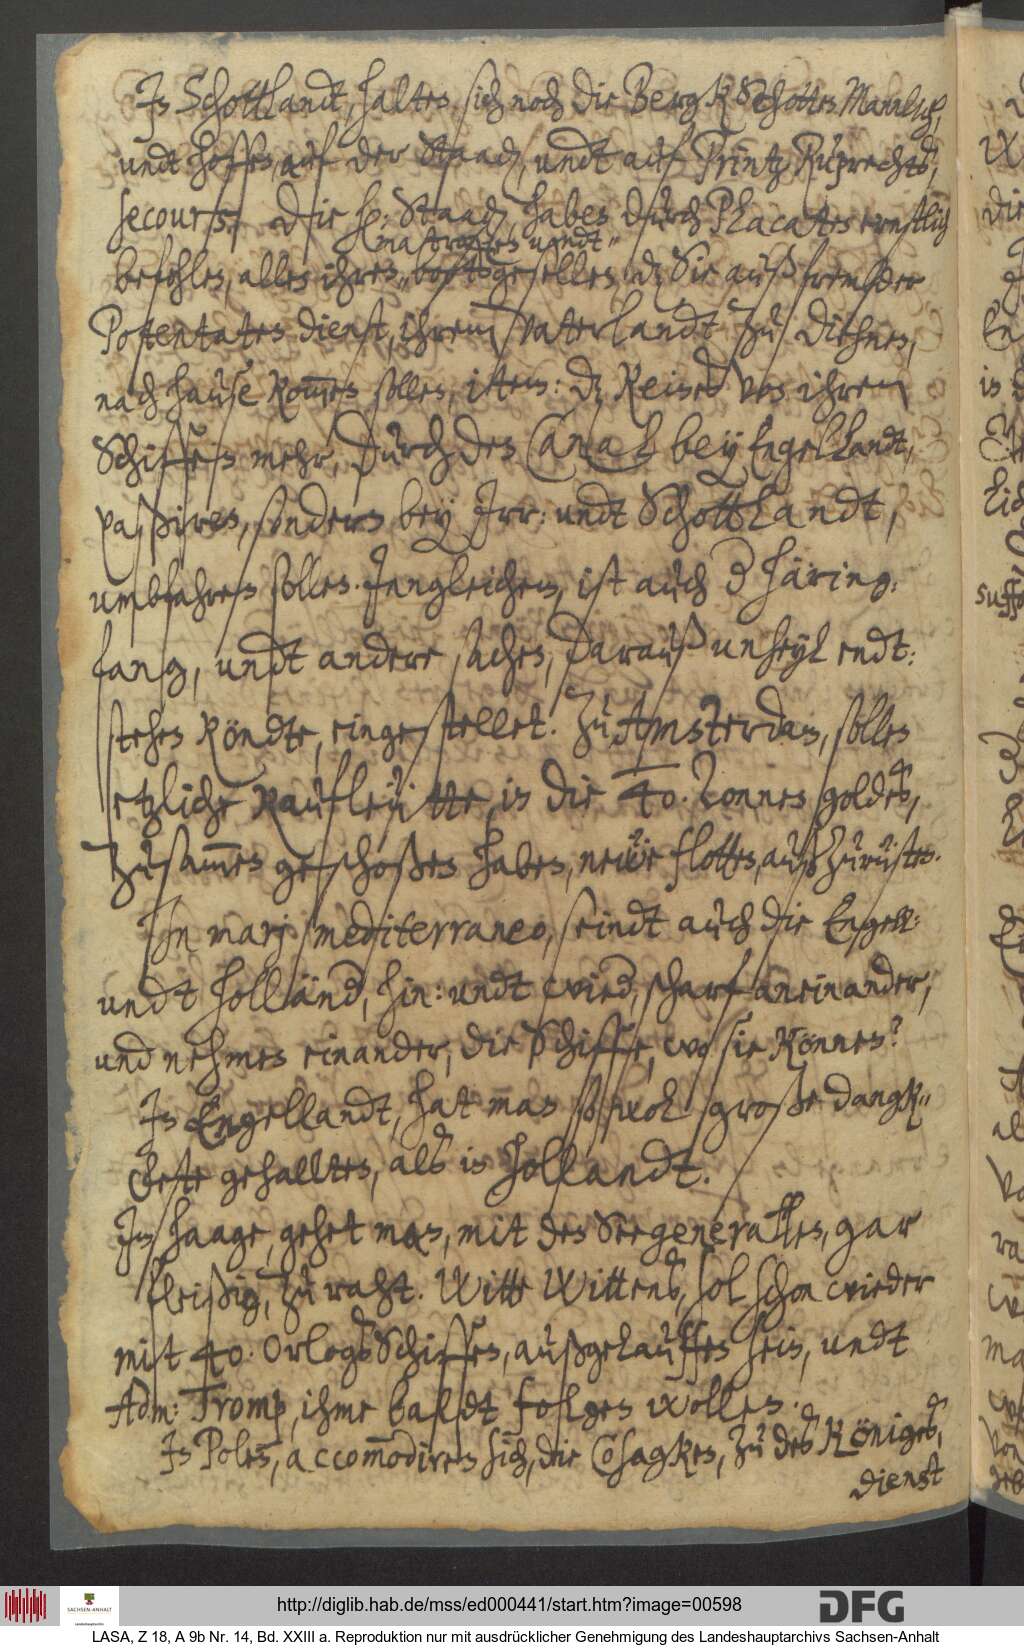 In Schottlandt, halten sich noch die BergkSchotten Mannlich,
undt hoffen, auf der Staad, undt auf Printz Ruprechts,
secourß. Die h: Staad, haben durch Placaten ernstlich
matrosen undt"
befohlen, allen ihren" bootsgesellen, dz Sie auß frembder
Potentaten dienst, ihrem Vaterlandt zu diehnen,
nach hause kom̅en sollen, item: dz Keines von ihren
Schiffen mehr, durch den Canal bey Engellandt,
paßiren, sondern bey Irr: undt Schottlandt,
umbfahren sollen. Jngleichem, ist auch d häring:
fang, undt andere sachen, darauß unheyl endt:
stehen köndte, eingestellet. Zu Amsterdam, sollen
etzliche Kaufleütte, in die 40. Tonnen goldes,
zusam̅en geschoßen haben, neẅe flotten, außzurüsten.
In marj mediterraneo, seindt auch die Engell:
undt Holländ, hin: undt wied, scharf aneinander,
und nehmen einander, die Schiffe, wo sie können?
In Engellandt, hat man so wol große dangk"
feste gehallten, alß in Hollandt.
Im Haage, gehet man, mit den Seegenerallen, gar
fleißig, zu raht. Witte Wittens, sol schon wieder
mit 40. OrlogsSchiffen, außgelauffen sein, undt
Adm: Tromp, ihme baldt folgen wollen.
In Polen, accom̅odiren sich, die Cosagken, zu des Königes,
dienst
http://diglib.hab.de/mss/ed000441/start.htm?image=00598
DFG
SACHSEN-ANHALT
LASA, Z 18, A 9b Nr. 14, Bd. XXIII a. Reproduktion nur mit ausdrücklicher Genehmigung des Landeshauptarchivs Sachsen-Anhalt